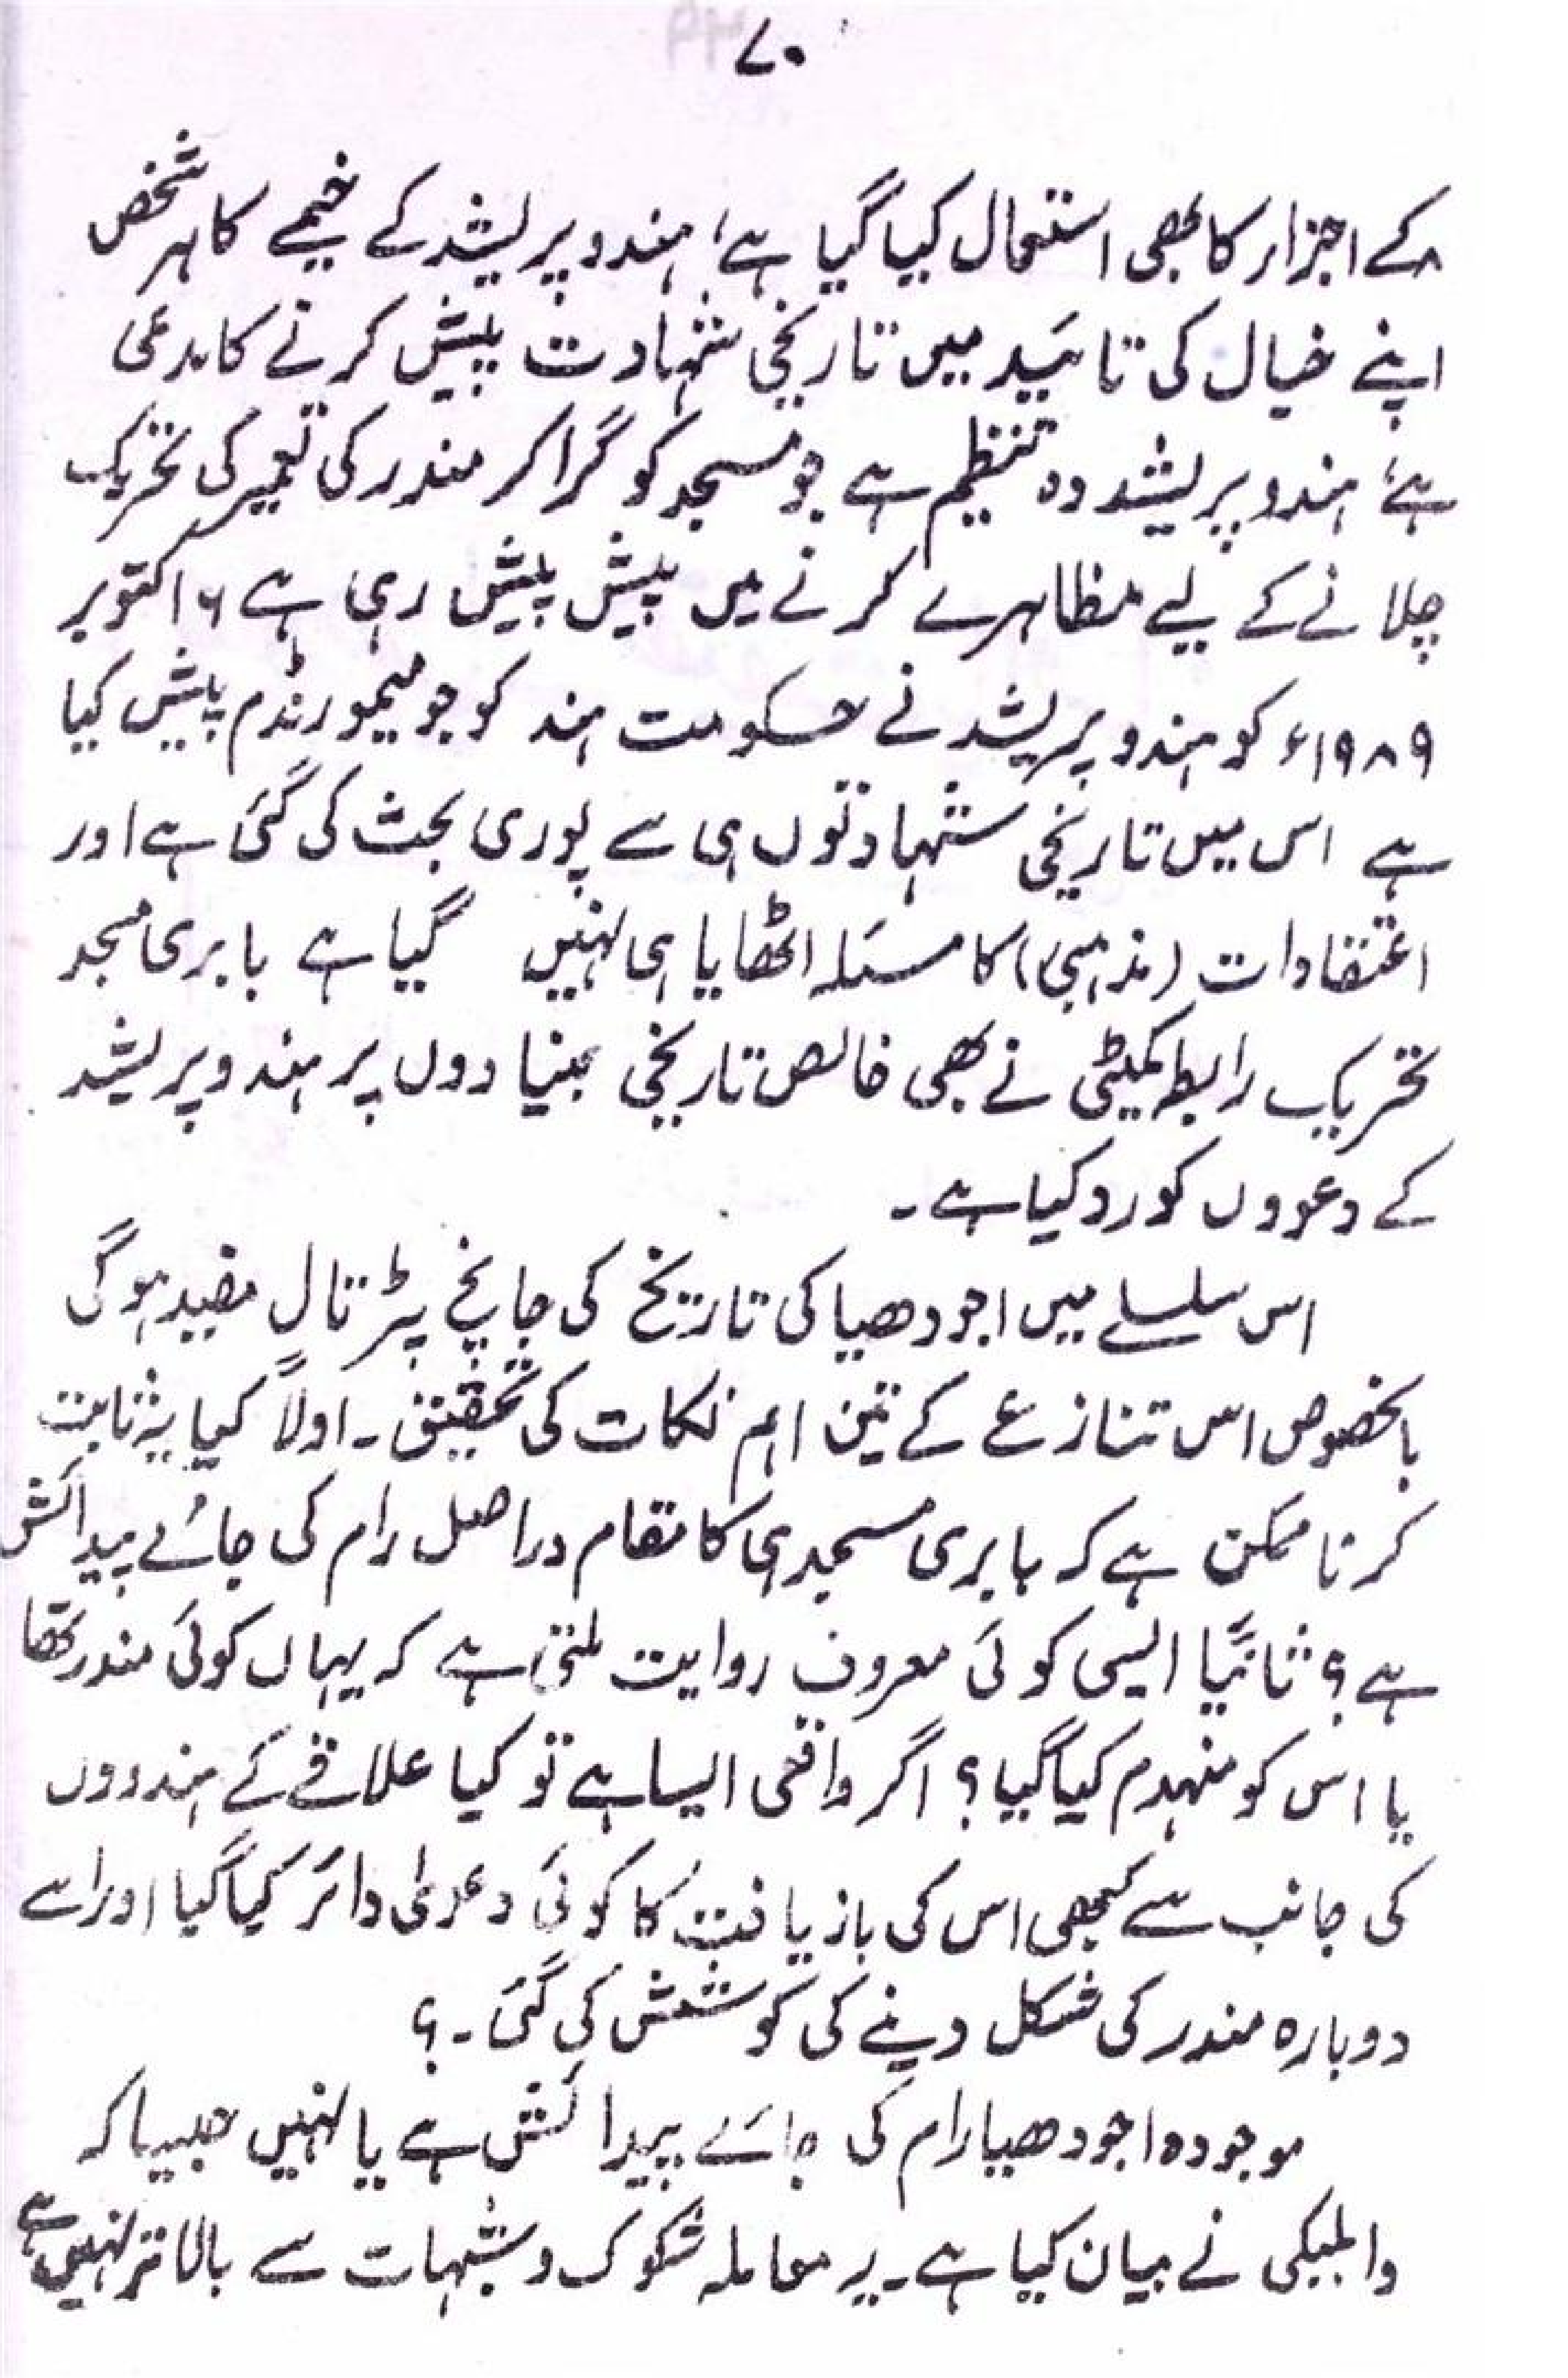 ۷۰
کے اجزار کا بھی استعمال کیا گیا ہے، ہندو پریشد کے خیمے کا ہر شخص
اپنے خیال کی تائید میں تاریخی شہادت پیش کرنے کا مدعی
ہے، ہندو پریشد وہ تنظیم ہے جو مسجد کو گرا کر مندر کی تعمیر کی تحریک
چلانے کے لیے مظاہرے کرنے میں پیش پیش رہی ہے ۶ اکتوبر
۱۹۸۹ء کو ہندو پریشد نے حکومت ہند کو جو میمورنڈم پیش کیا
ہے اس میں تاریخی شہادتوں ہی سے پوری بحث کی گئی ہے اور
اعتقادات (مذہبی) کا مسئلہ اٹھایا ہی نہیں گیا ہے بابری مسجد
تحریک رابطہ کمیٹی نے بھی خالص تاریخی بنیادوں پر ہندو پریشد
کے دعووں کو رد کیا ہے۔
اس سلسلے میں اجودھیا کی تاریخ کی جانچ پڑتال مفید ہوگی
بالخصوص اس تنازع کے تین اہم نکات کی تحقیق۔ اولاً کیا یہ ثابت
کرنا ممکن ہے کہ بابری مسجد ہی کا مقام دراصل رام کی جائے پیدائش
ہے؟ ثانیًا ایسی کوئی معروف روایت ملتی ہے کہ یہاں کوئی مندر تھا
یا اس کو منہدم کیا گیا؟ اگر واقعی ایسا ہے تو کیا علاقے کے ہندووں
کی جانب سے کبھی اس کی بازیافت کا کوئی دعویٰ دائر کیا گیا اور اسے
دوبارہ مندر کی شکل دینے کی کوشش کی گئی۔؟
موجودہ اجودھیا رام کی جائے پیدائش ہے یا نہیں جیسا کہ
والمیکی نے بیان کیا ہے۔ یہ معاملہ شکوک و شبہات سے بالاتر نہیں ہے